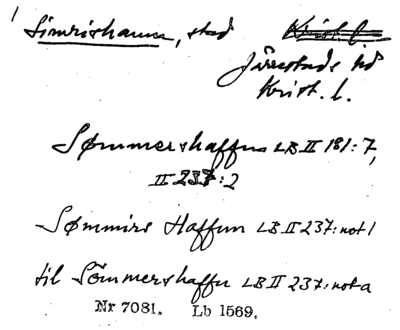 Simrishamn, stad
Krist. l.
Järrestads hd
Krist. l.
Sømmershaffnn LB II 181:7,
II 237:2
Sømmirs Haffnn LB II 237: not 1
til Sömmershaffn LB II 237: not a
Nr 7081. Lb 1569.